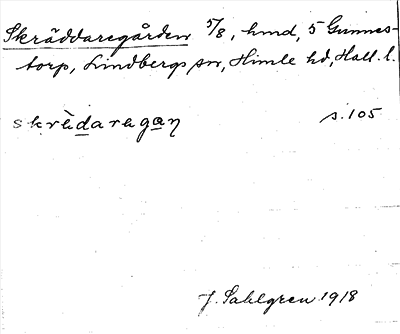 Skräddaregården 5/8, hmd, 5 Gunnes-
torp, Lindbergs sn, Himle hd, Hall. l.
skrädaragan s. 105
J. Sahlgren 1918